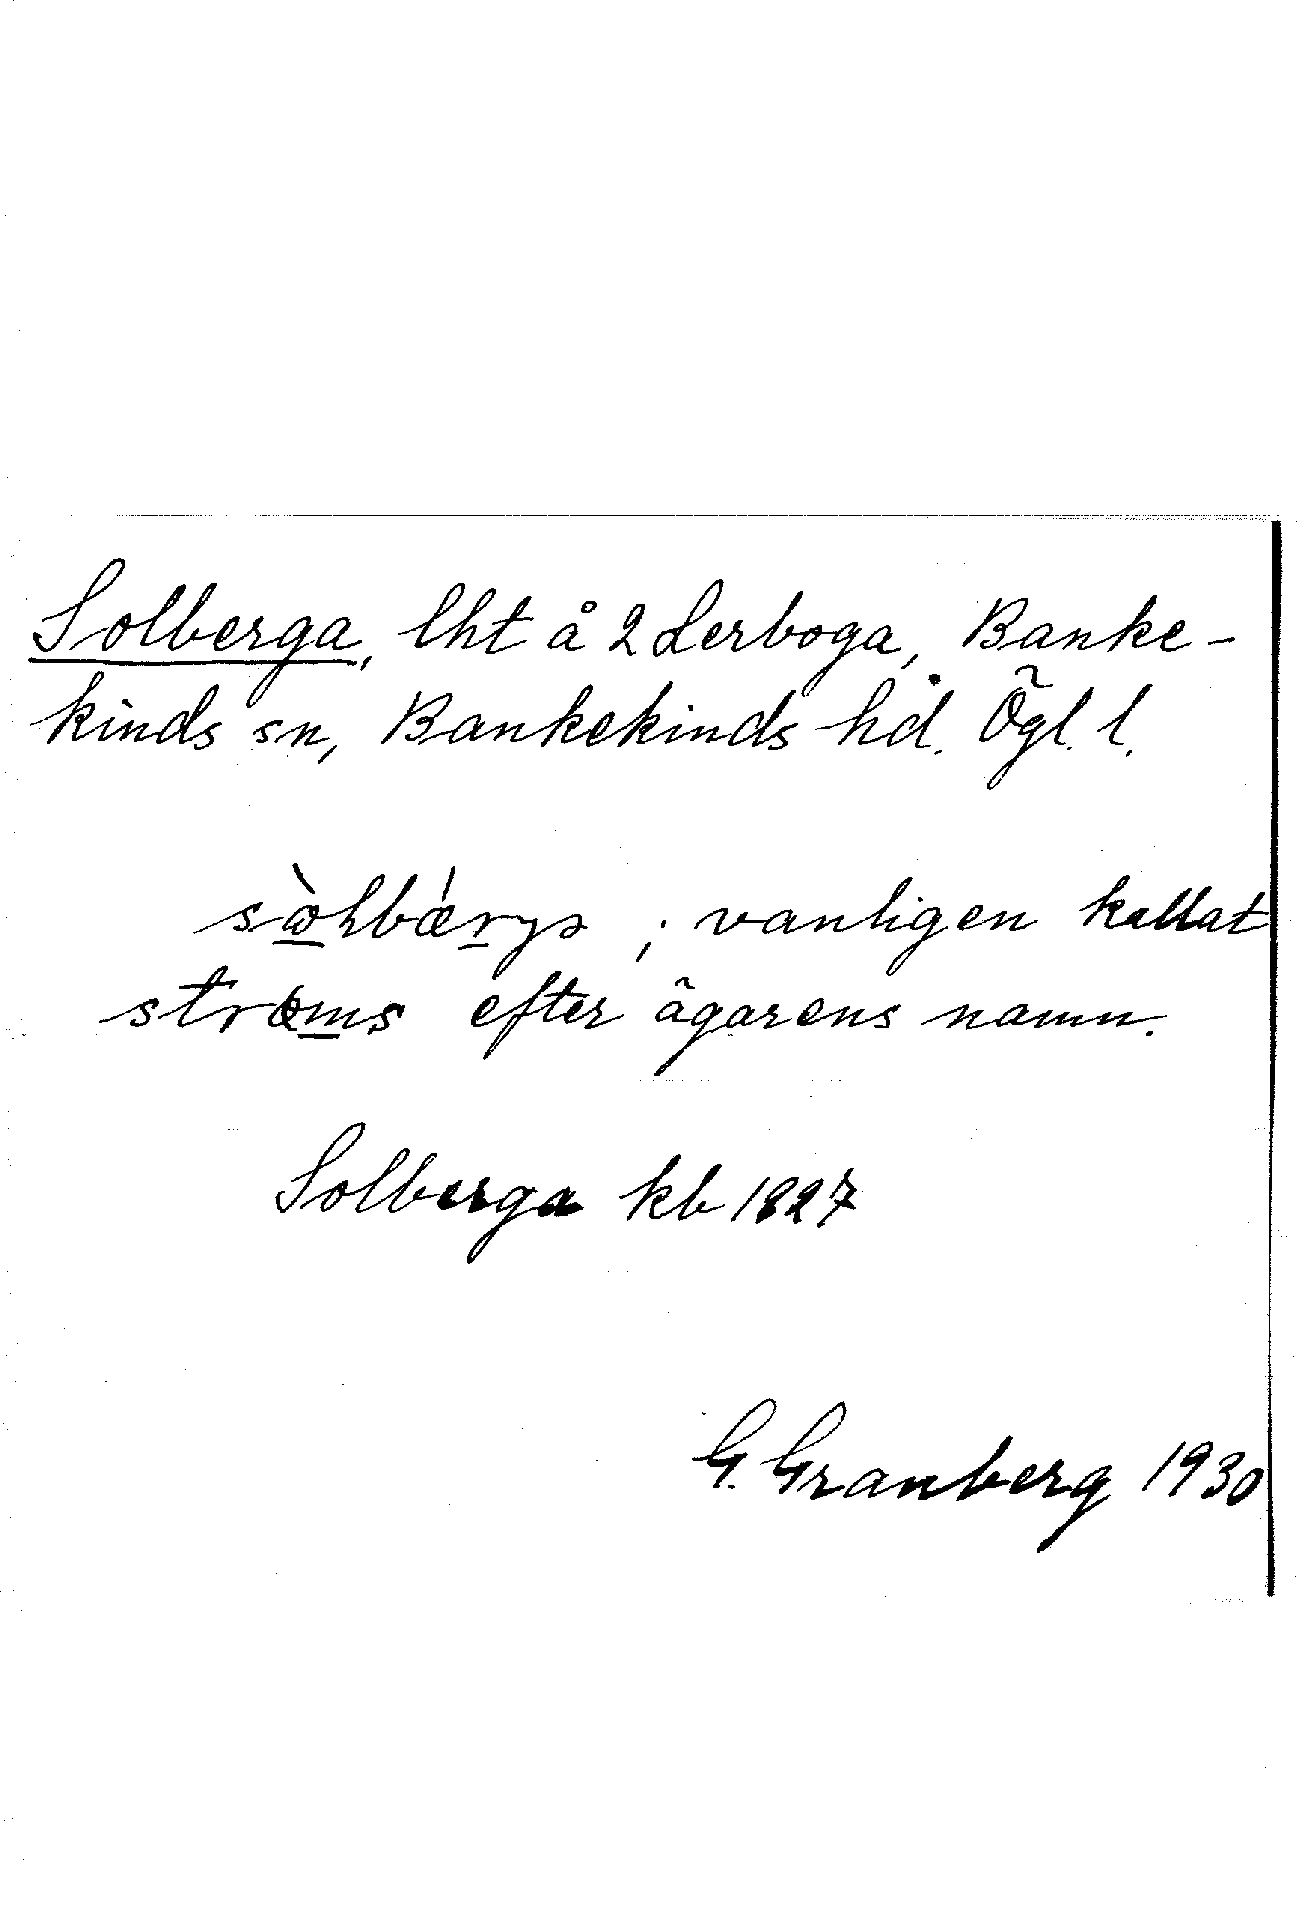 Solberga, lht å 2 Lerboga, Banke-
kinds sn, Bankekinds hd. Ögl. l.
vanligen kallat
strøms efter ägarens namn.
Solberga kb 1827
G. Granberg 1930